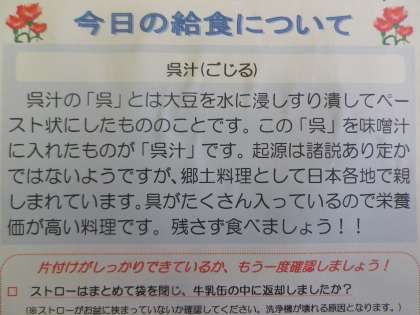 今日の給食について
呉汁(ごじる)
呉汁の「呉」とは大豆を水に浸しすり潰してペー
スト状にしたもののことです。この「呉」を味噌汁
に入れたものが「呉汁」です。起源は諸説あり定か
ではないようですが、郷土料理として日本各地で親
しまれています。具がたくさん入っているので栄養
価が高い料理です。残さず食べましょう！！
片付けがしっかりできているか、もう一度確認しましょう！
□ ストローはまとめて袋を閉じ、牛乳缶の中に返却しましたか？
(※ストローがお盆に挟まっていないか確認してください。洗浄機が壊れる原因となります。)